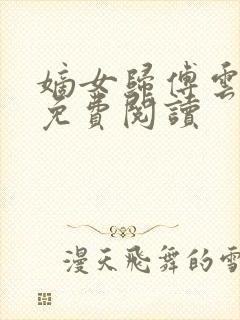 嫡女歸傅雲
免費閱讀
漫天飛舞的雪